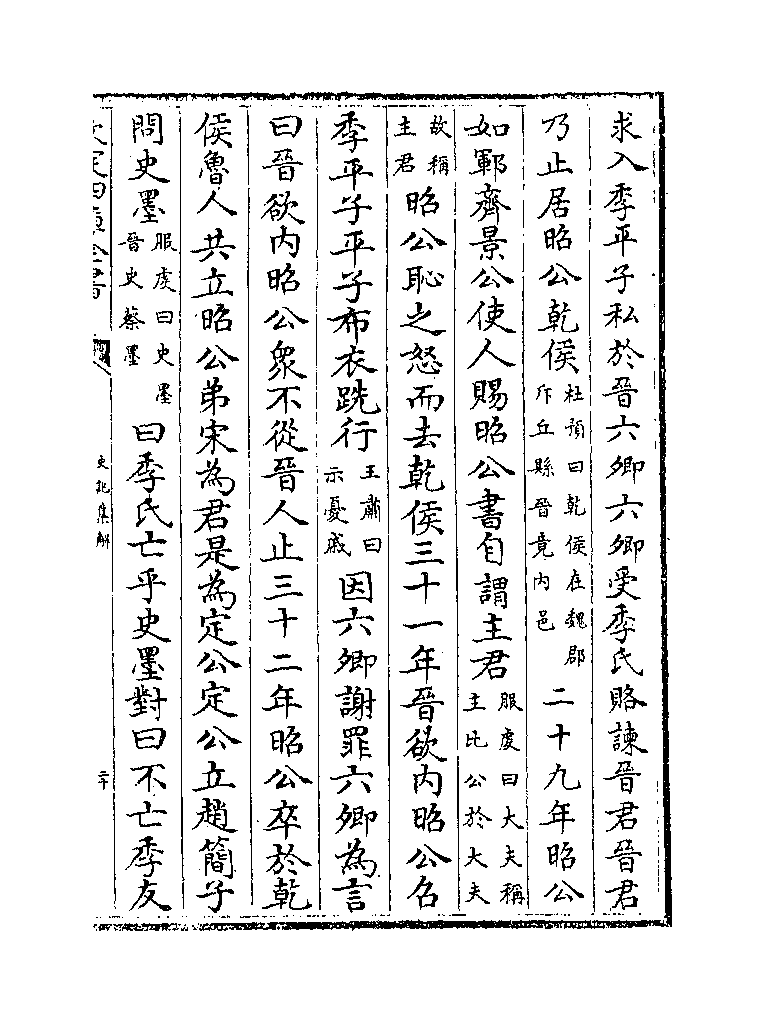 求入季平子私於晉六卿六卿受季氏賂諫晉君晉君
乃止居昭公乾侯杜預曰乾侯在魏郡斥丘縣晉竟內邑二十九年昭公
如鄆齊景公使人賜昭公書自謂主君服虔曰大夫稱主比公於大夫
故稱主君昭公恥之怒而去乾侯三十一年晉欲內昭公召
季平子平子布衣跣行王肅曰示憂戚因六卿謝罪六卿為言
曰晉欲內昭公眾不從晉人止三十二年昭公卒於乾
侯魯人共立昭公弟宋為君是為定公定公立趙簡子
問史墨服虔曰史墨晉史蔡墨曰季氏亡乎史墨對曰不亡季友
欽定四庫全書
史記集解
二十